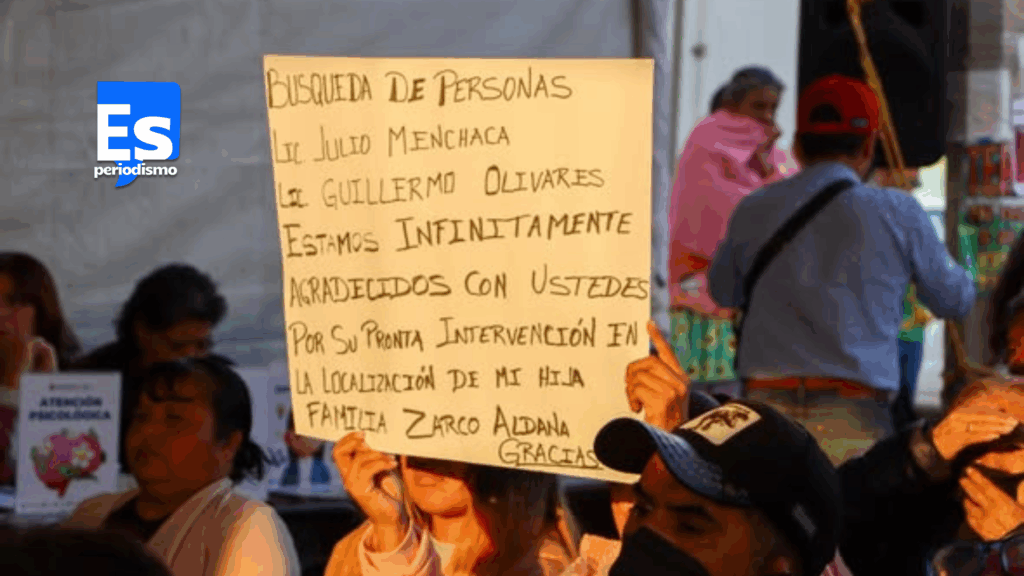 Es
periodismo
BUSQUEDA DE PERSONAS
LIC JULIO MENCHACA
LIC GUILLERMO OLIVARES
ESTAMOS INFINITAMENTE
AGRADECIDOS CON USTEDES
POR SU PRONTA INTERVENCIÓN EN
LA LOCALIZACIÓN DE MI HIJA
FAMILIA ZARCO ALDANA
GRACIAS
ATENCIÓN
PSICOLÓGICA